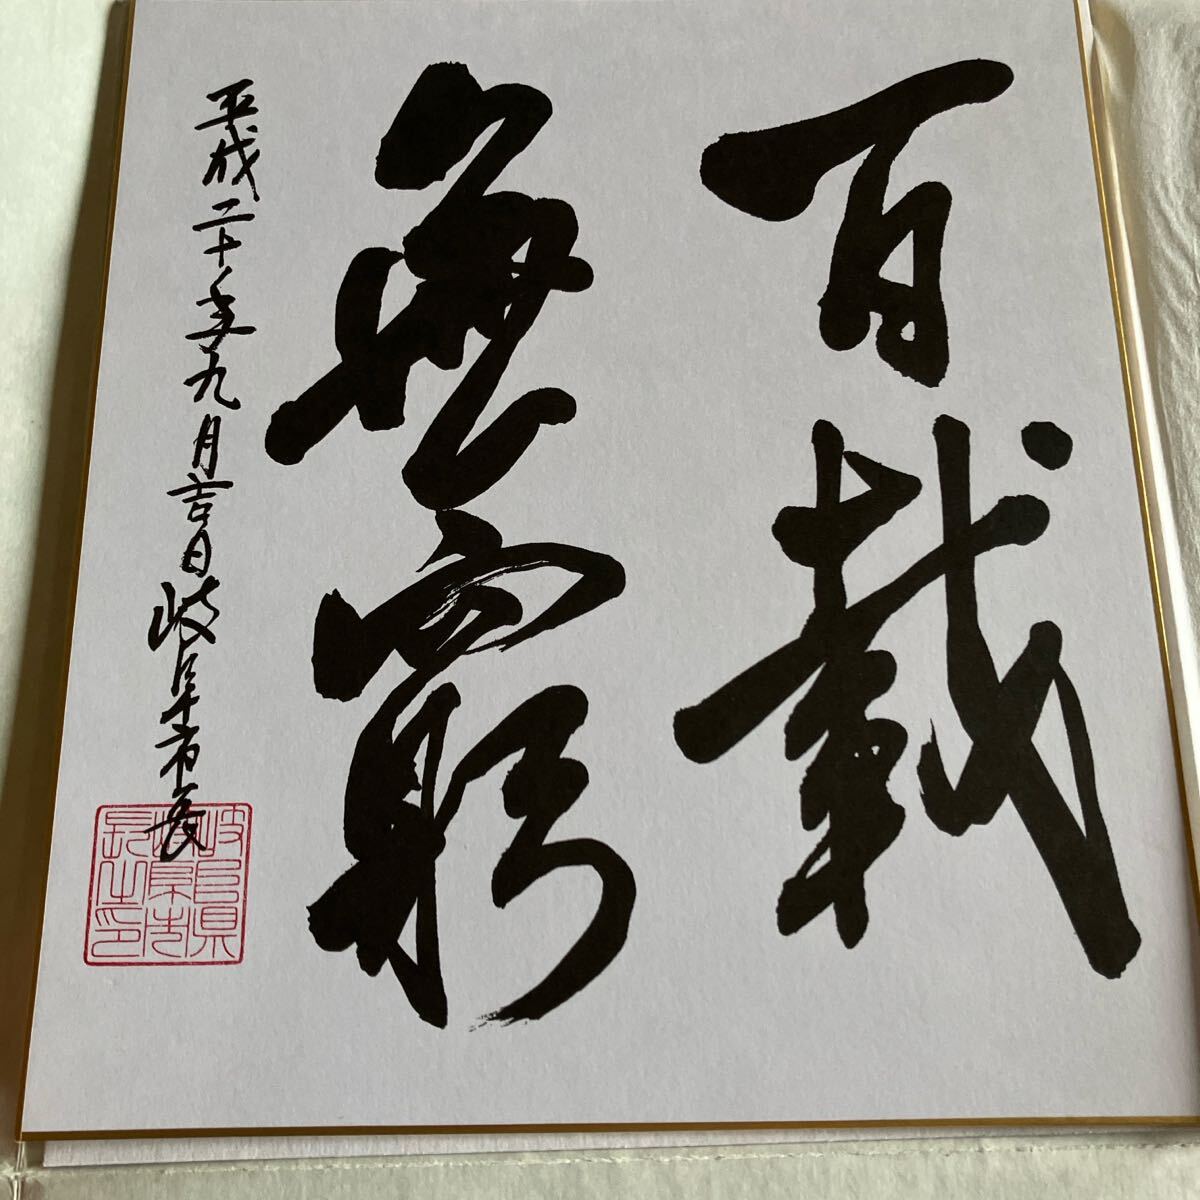 百載
無窮
平成二十年九月吉日岐阜市長
岐阜県
岐阜市
長之印